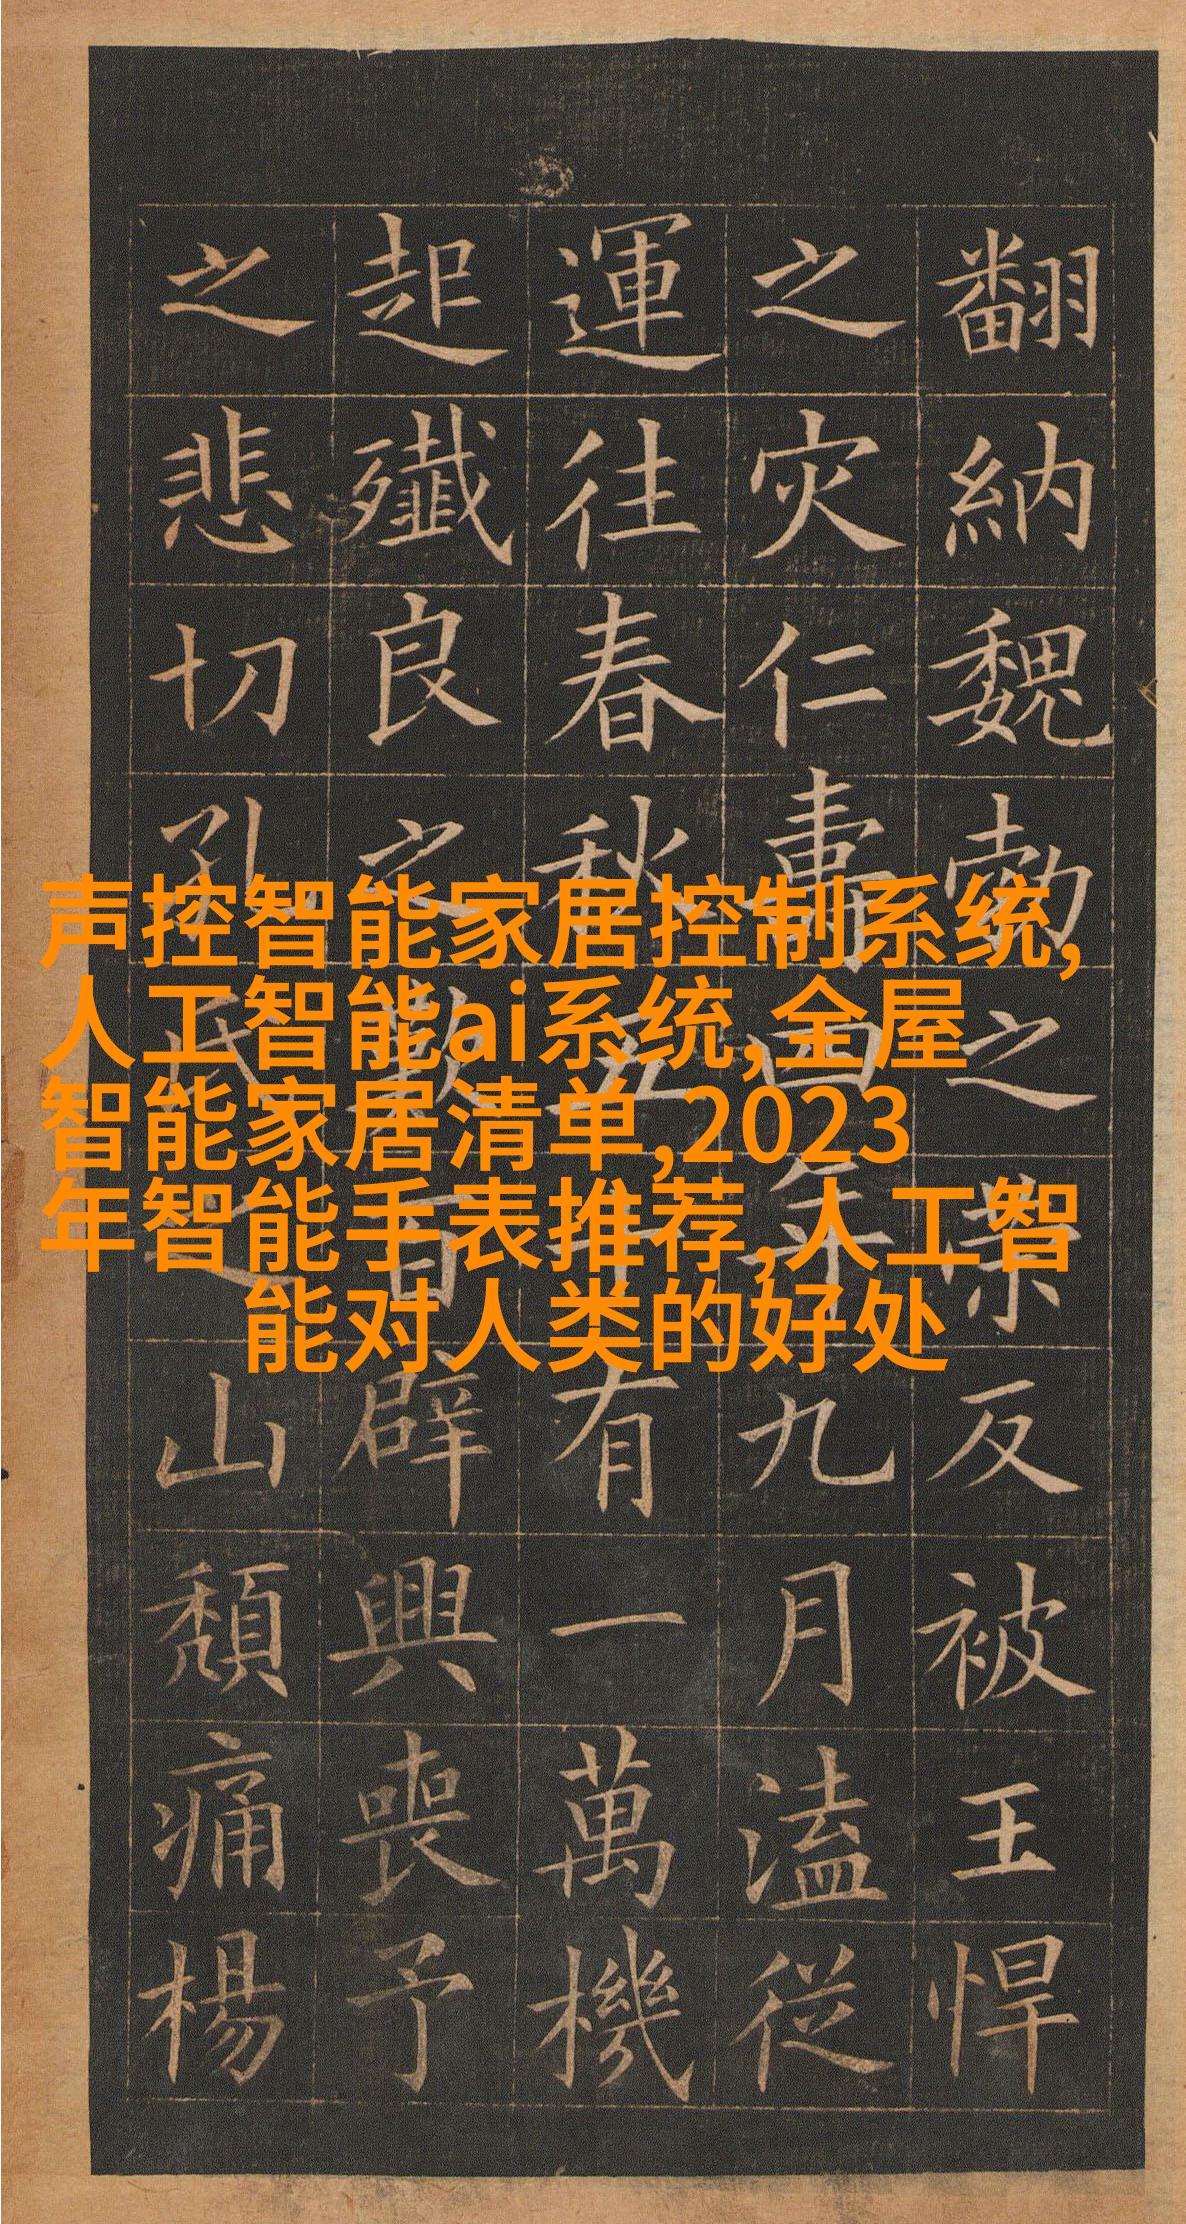 翻納魏勃之反被王悍
之灾仁壽四年九月溘從
運往春秋五十有一萬機
起殲良之歎百辟興喪予
之悲切孔氏之山頹痛楊
声控智能家居控制系统,
人工智能ai系统,全屋
智能家居清单,2023
年智能手表推荐,人工智
能对人类的好处